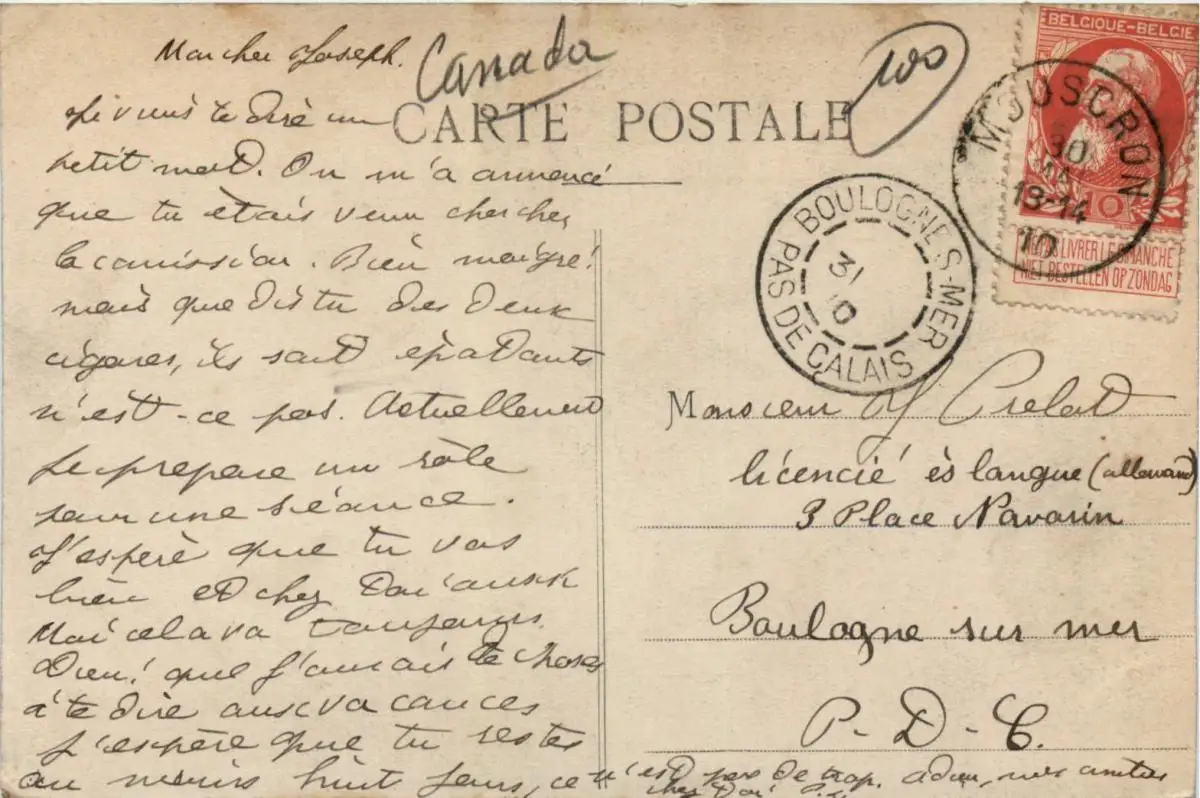 Mon cher Joseph.
Canada
100
CARTE POSTALE
Je viens te dire un
petit mot. On m'a annoncé
que tu étais venu chercher
la comission. Bien maigre!
mais que dis tu des deux
cigares, ils sont épatants
n'est-ce pas. Actuellement
Je prepare un rôle
pour une séance.
J'espère que tu vas
bien et chez toi aussi
Moi cela va toujours.
Dieu! que j'aurais de choses
à te dire aux vacances
J'espère que tu restes
au moins huit jours, ce n'est pas de trop. adieu, mes amitiés
chez toi
BELGIQUE-BELGIE
10
NE PAS LIVRER LE DIMANCHE
NIET BESTELLEN OP ZONDAG
MOUSCRON
30
13-14
10
BOULOGNE S-MER
31
10
PAS DE CALAIS
Monsieur J Prelat
licencié ès langue (allemand)
3 Place Navarin
Boulogne sur mer
P-D-C.